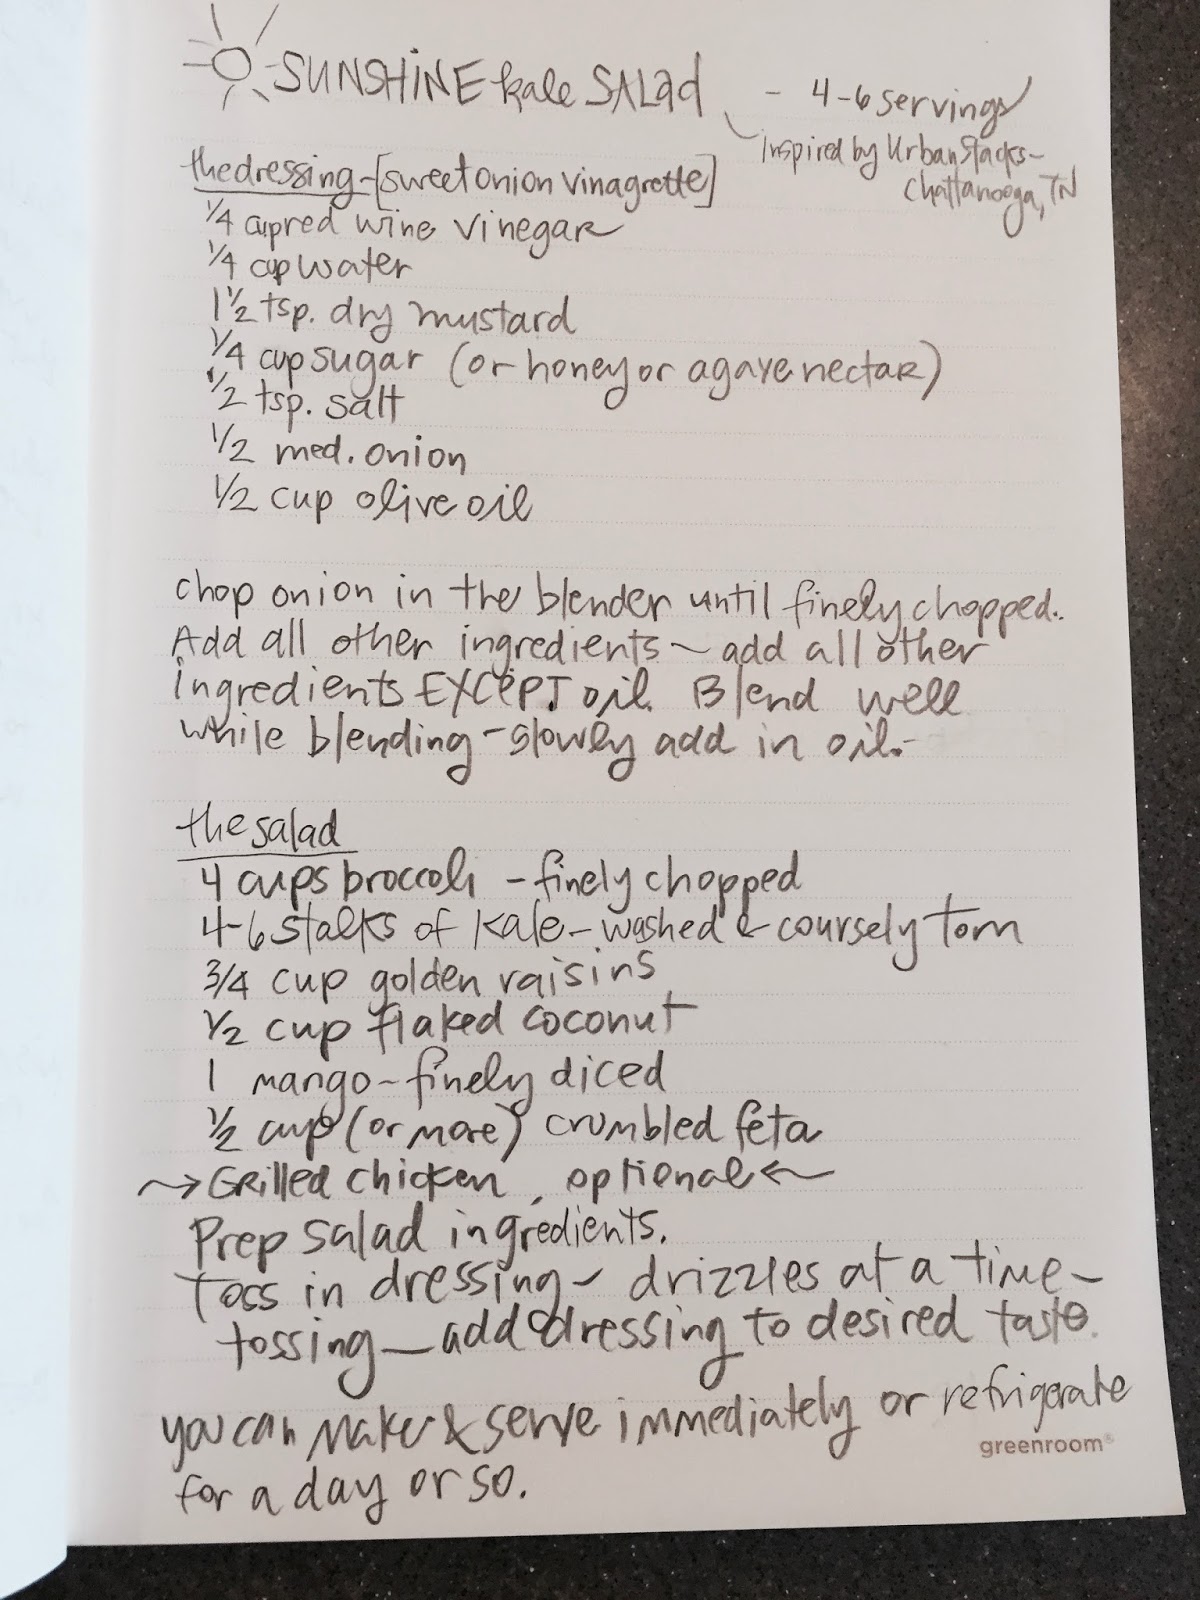 SUNSHINE kale SALad - 4-6 servings
Inspired by Urban Stacks-
Chattanooga, TN
the dressing-[sweet onion vinagrette]
1/4 cup red wine vinegar
1/4 cup water
1 1/2 tsp. dry mustard
1/4 cup sugar (or honey or agave nectar)
1/2 tsp. salt
1/2 med. onion
1/2 cup olive oil
chop onion in the blender until finely chopped.
Add all other ingredients ~ add all other
ingredients EXCEPT oil. Blend well
while blending - slowly add in oil.-
the salad
4 cups broccoli - finely chopped
4-6 stalks of kale - washed & coursely torn
3/4 cup golden raisins
1/2 cup flaked coconut
1 mango - finely diced
1/2 cup (or more) crumbled feta
→ Grilled chicken, optional ←
Prep salad ingredients.
Toss in dressing - drizzles at a time -
tossing - add dressing to desired taste.
you can make & serve immediately or refrigerate
greenroom®
for a day or so.